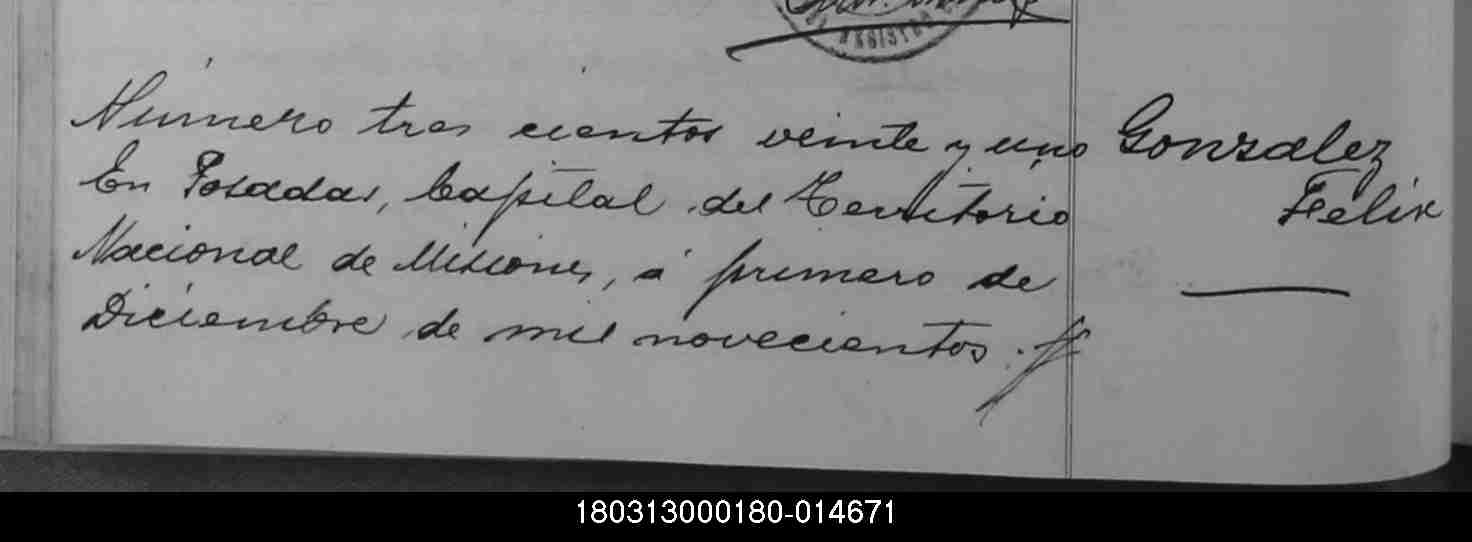 REGISTRO
Número tres cientos veinte y uno
En Posadas, Capital del Territorio
Nacional de Misiones, á primero de
Diciembre de mil novecientos.
Gonzalez
Felix
180313000180-014671